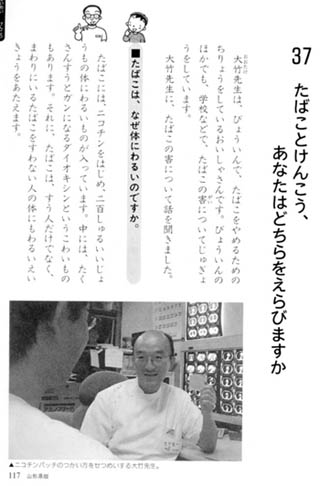 37 たばことけんこう、
あなたはどちらをえらびますか
大竹先生は、びょういんで、たばこをやめるための
おおたけ
ちりょうをしているおいしゃさんです。びょういんの
ほかでも、学校などで、たばこの害についてじゅぎょ
うをしています。
大竹先生に、たばこの害について話を聞きました。
■たばこは、なぜ体にわるいのですか。
たばこには、ニコチンをはじめ、二百しゅるいいじょ
うもの体にわるいものが入っています。中には、たく
さんすうとガンになるダイオキシンというこわいもの
もあります。それに、たばこは、すう人だけでなく、
まわりにいるたばこをすわない人の体にもわるいえい
きょうをあたえます。
▲ニコチンパッチのつかい方をせつめいする大竹先生。
117